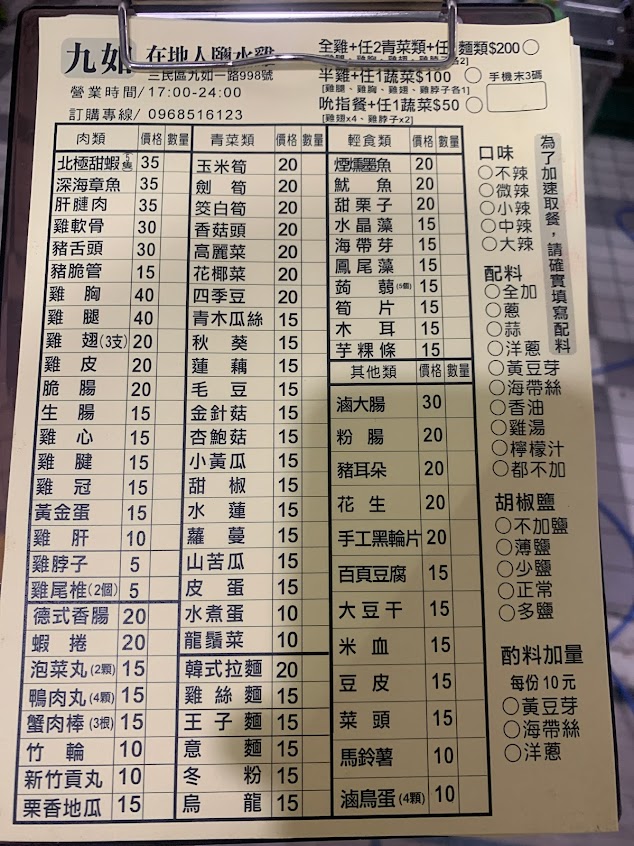 九如 在地人鹽水雞
三民區九如一路998號
營業時間/17:00-24:00
訂購專線/ 0968516123
全雞+任2青菜類+任 麵類$200○
半雞+任1蔬菜$100 ○
[雞腿、雞胸、雞翅、雞脖子各1]
吮指餐+任1蔬菜$50 ○
[雞翅x4、雞脖子x2]
手機末3碼
肉類 價格 數量
北極甜蝦 5隻 35
深海章魚 35
肝腱肉 35
雞軟骨 30
豬舌頭 30
豬脆管 15
雞胸 40
雞腿 40
雞翅(3支) 20
雞皮 20
脆腸 20
生腸 15
雞心 15
雞腱 15
雞冠 15
黃金蛋 15
雞肝 10
雞脖子 5
雞尾椎(2個) 5
德式香腸 20
蝦捲 20
泡菜丸(2顆) 15
鴨肉丸(4顆) 15
蟹肉棒(3根) 15
竹輪 10
新竹貢丸 10
栗香地瓜 15
青菜類 價格 數量
玉米筍 20
劍筍 20
筊白筍 20
香菇頭 20
高麗菜 20
花椰菜 20
四季豆 20
青木瓜絲 15
秋葵 15
蓮藕 15
毛豆 15
金針菇 15
杏鮑菇 15
小黃瓜 15
甜椒 15
水蓮 15
蘿蔓 15
山苦瓜 15
皮蛋 15
水煮蛋 10
龍鬚菜 10
韓式拉麵 20
雞絲麵 15
王子麵 15
意麵 15
冬粉 15
烏龍 15
輕食類 價格 數量
煙燻墨魚 20
魷魚 20
甜栗子 20
水晶藻 15
海帶芽 15
鳳尾藻 15
蒟蒻(5個) 15
筍片 15
木耳 15
芋粿條 15
其他類 價格 數量
滷大腸 30
粉腸 20
豬耳朵 20
花生 20
手工黑輪片 20
百頁豆腐 15
大豆干 15
米血 15
豆皮 15
菜頭 15
馬鈴薯 10
滷鳥蛋(4顆) 10
口味
○不辣
○微辣
○小辣
○中辣
○大辣
配料
○全加
○蔥
○蒜
○洋蔥
○黃豆芽
○海帶絲
○香油
○雞湯
○檸檬汁
○都不加
胡椒鹽
○不加鹽
○薄鹽
○少鹽
○正常
○多鹽
酌料加量
每份10元
○黃豆芽
○海帶絲
○洋蔥
為了加速取餐，請確實填寫配料